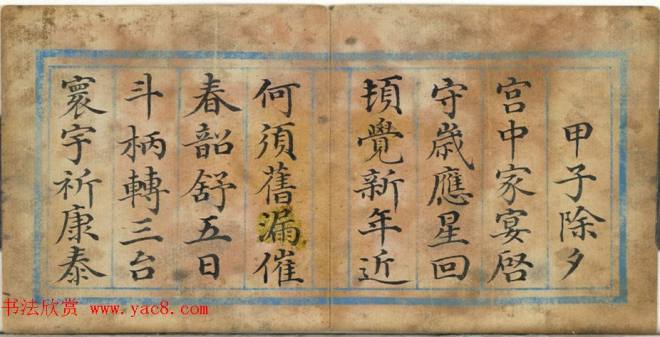 甲子除夕
宫中家宴啓
守歲應星回
頓覺新年近
何須舊漏催
春韶舒五日
斗柄轉三台
寰宇祈康泰
书法欣赏
www.yac8.com